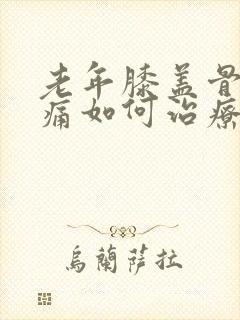 老年膝盖骨
痛如何治疗
烏蘭薩拉